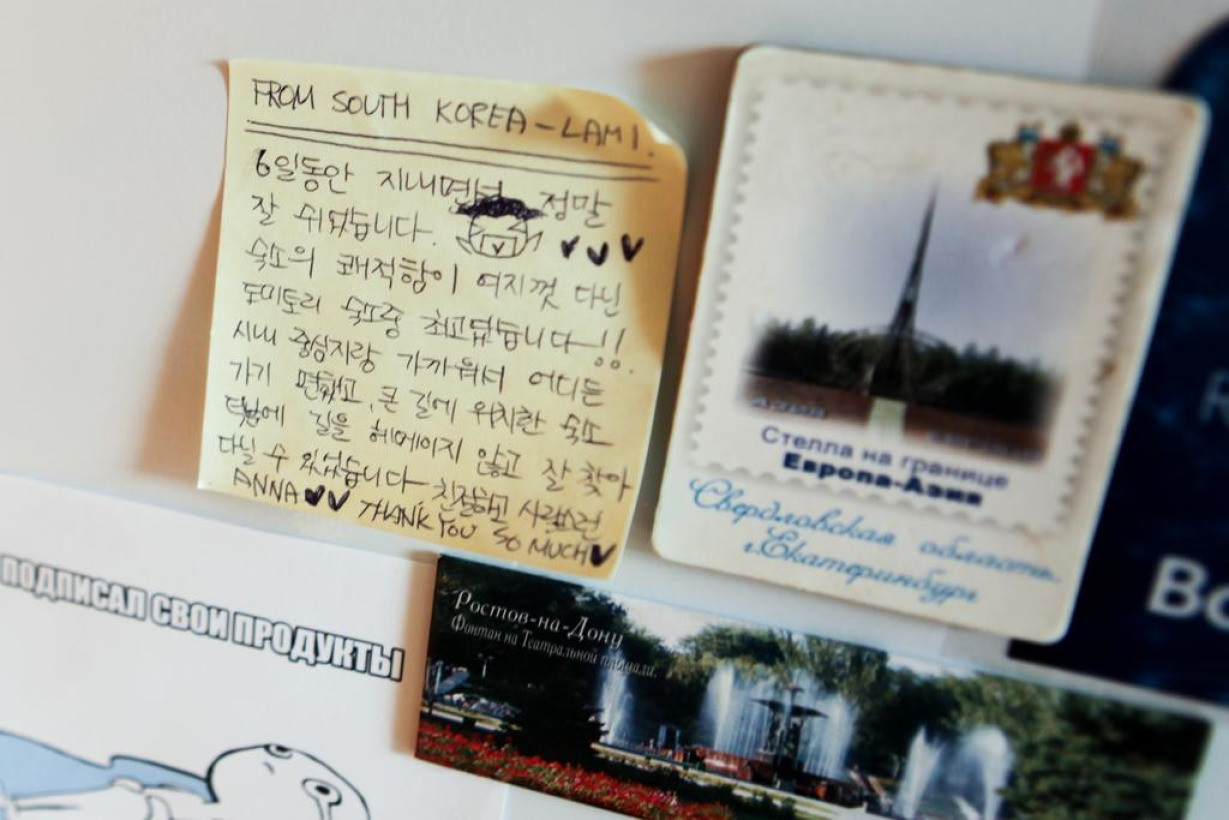 FROM SOUTH KOREA - LAMI.
6일동안 지내면서 정말
잘 쉬었습니다.
숙소의 쾌적함이 여지껏 다닌
도미토리 숙소중 최고였습니다!!
시내 중심지랑 가까워서 어디든
가기 편했고, 큰 길에 위치한 숙소
덕분에 길을 헤메이지 않고 잘 찾아
다닐 수 있었습니다 친절하고 사랑스런
ANNA♥♥ THANK YOU SO MUCH♥
Азия
Стелла на границе
Европа-Азия
Свердловская область
г.Екатеринбург
ПОДПИСАЛ СВОИ ПРОДУКТЫ
Ростов-на-Дону
Фонтан на Театральной площади.